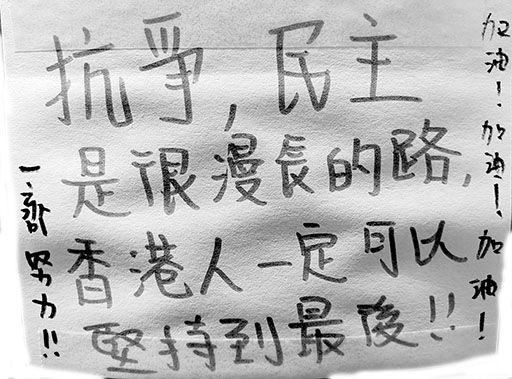 抗爭,民主
是很漫長的路,
香港人一定可以
堅持到最後!!
加油!加油!加油!
一齊努力!!